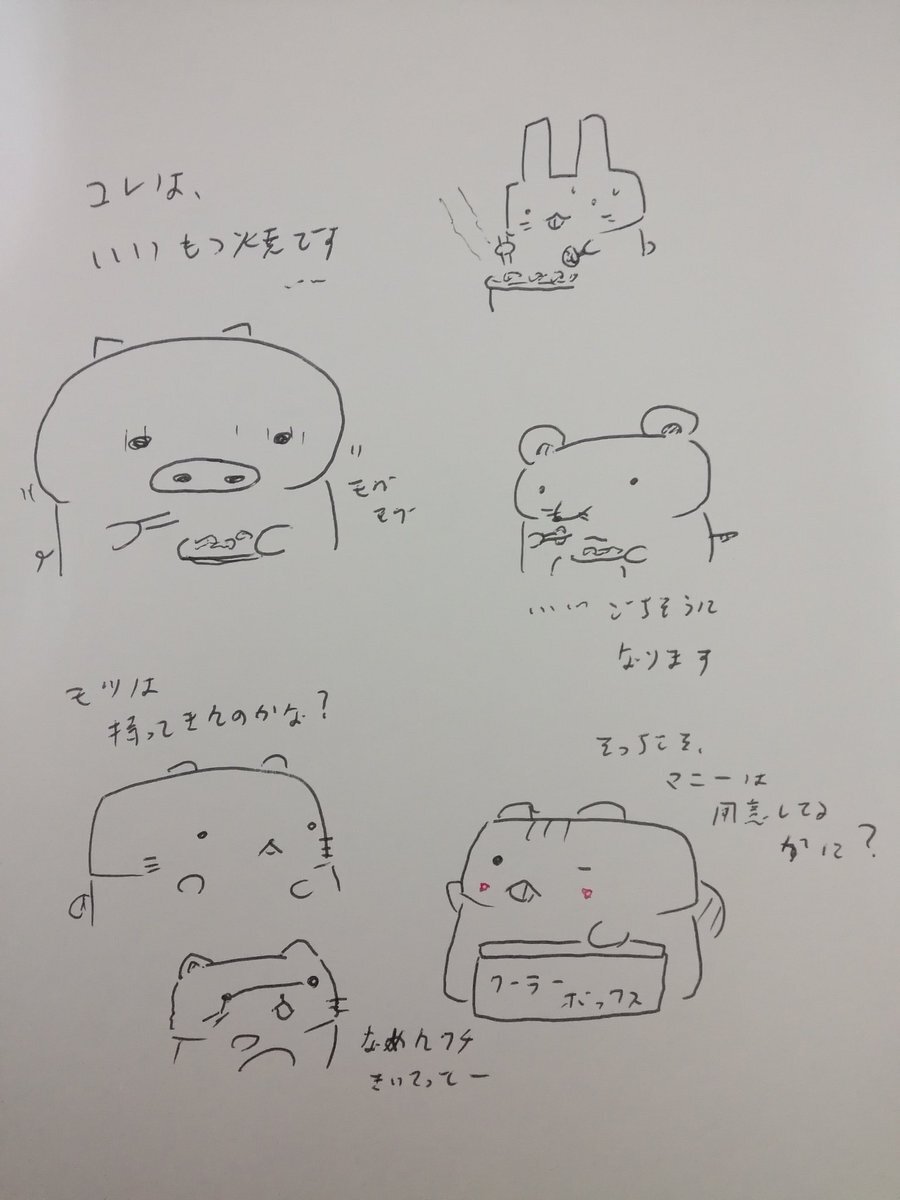 コレは、
いいもつ焼です
モグ
モグ
ごちそうに
なります
モツは
持ってきんのかな?
そっちこそ、
マニーは
用意してる
かに?
クーラー
ボックス
なめんフチ
きいてってー